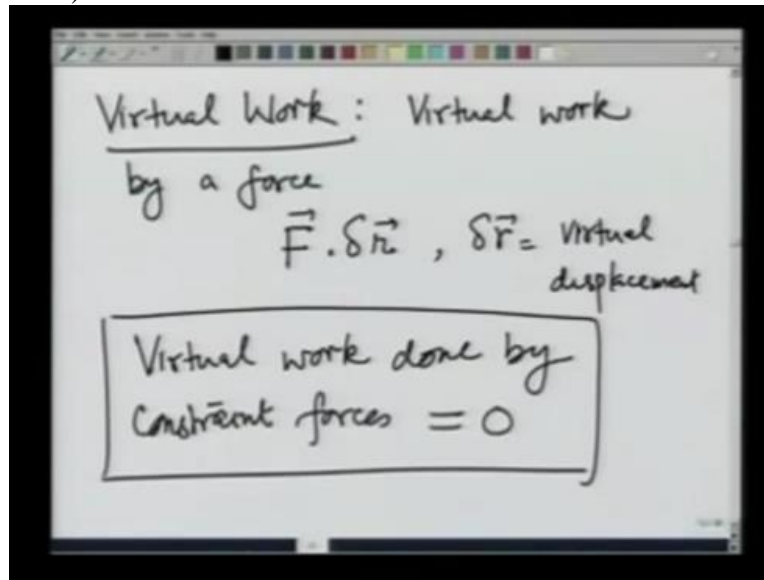 Virtual Work: Virtual work
by a force
F⃗ . δr⃗ , δr⃗ = virtual
displacement
Virtual work done by
Constraint forces = 0